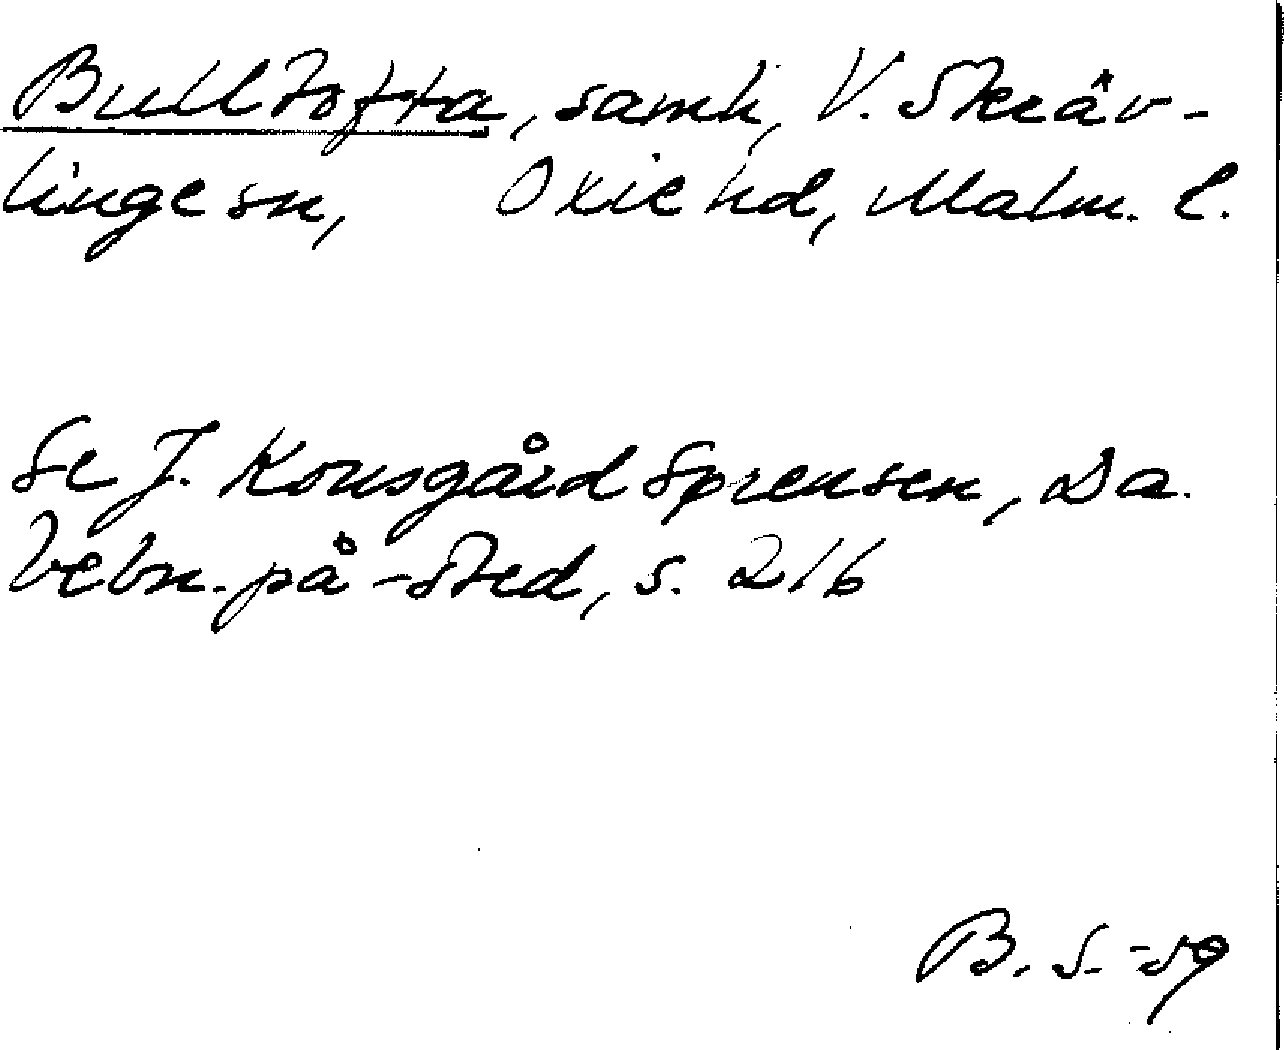 Bulltofta, samh, V. Skräv-
linge sn, Oxie hd, Malm. l.
Se J. Kousgård Sørensen, Da.
bebn. på -sted, s. 216
B. S. -59